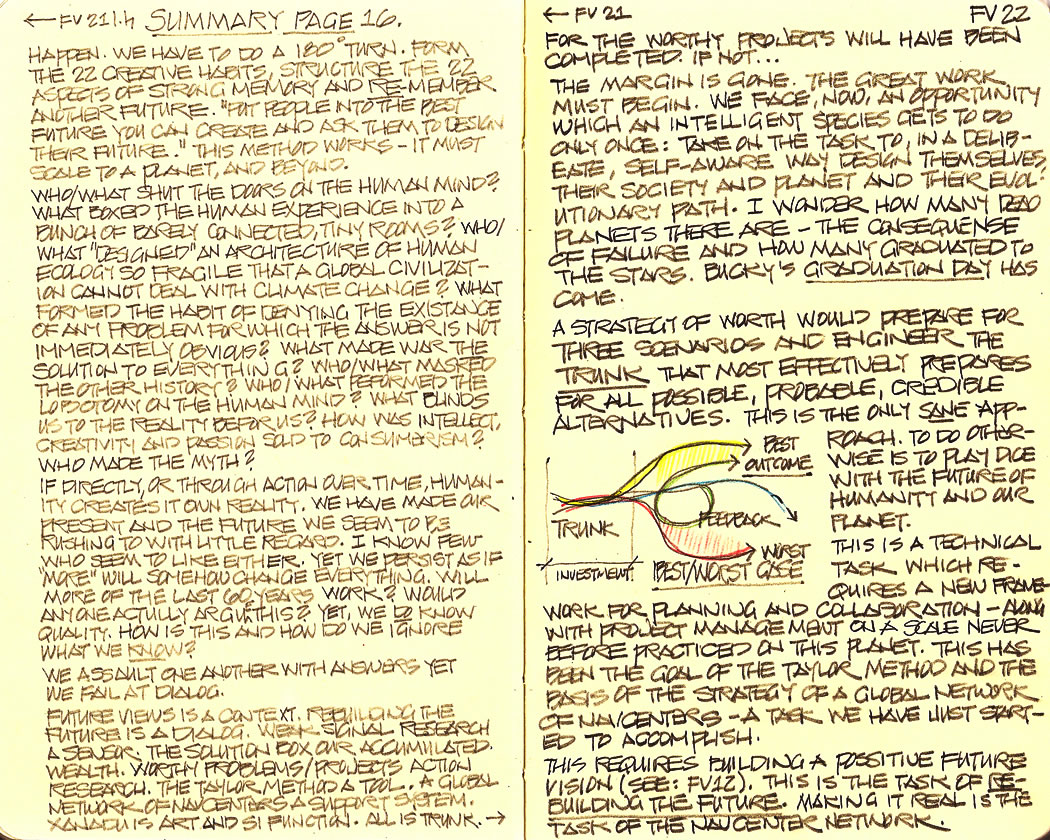 ← FV 21 1.4 SUMMARY PAGE 16.
HAPPEN. WE HAVE TO DO A 180° TURN. FORM
THE 22 CREATIVE HABITS, STRUCTURE THE 22
ASPECTS OF STRONG MEMORY AND RE-MEMBER
ANOTHER FUTURE. "PUT PEOPLE INTO THE BEST
FUTURE YOU CAN CREATE AND ASK THEM TO DESIGN
THEIR FUTURE." THIS METHOD WORKS - IT MUST
SCALE TO A PLANET, AND BEYOND.
WHO/WHAT SHUT THE DOORS ON THE HUMAN MIND?
WHAT BOXED THE HUMAN EXPERIENCE INTO A
BUNCH OF BARELY CONNECTED, TINY ROOMS? WHO/
WHAT "DESIGNED" AN ARCHITECTURE OF HUMAN
ECOLOGY SO FRAGILE THAT A GLOBAL CIVILIZAT-
ION CANNOT DEAL WITH CLIMATE CHANGE? WHAT
FORMED THE HABIT OF DENYING THE EXISTANCE
OF ANY PROBLEM FOR WHICH THE ANSWER IS NOT
IMMEDIATELY OBVIOUS? WHAT MADE WAR THE
SOLUTION TO EVERYTHING? WHO/WHAT MASKED
THE OTHER HISTORY? WHO/WHAT PEFORMED THE
LOBOTOMY ON THE HUMAN MIND? WHAT BLINDS
US TO THE REALITY BEFOR US? HOW WAS INTELLECT,
CREATIVITY AND PASSION SOLD TO CONSUMERISM?
WHO MADE THE MYTH?
IF DIRECTLY, OR THROUGH ACTION OVER TIME, HUMAN-
ITY CREATES IT OWN REALITY. WE HAVE MADE OUR
PRESENT AND THE FUTURE WE SEEM TO BE
RUSHING TO WITH LITTLE REGARD. I KNOW FEW
WHO SEEM TO LIKE EITHER. YET WE PERSIST AS IF
"MORE" WILL SOMEHOW CHANGE EVERYTHING. WILL
MORE OF THE LAST 60 YEARS WORK? WOULD
ANYONE ACTULLY ARGUE THIS? YET, WE DO KNOW
QUALITY. HOW IS THIS AND HOW DO WE IGNORE
WHAT WE KNOW?
WE ASSAULT ONE ANOTHER WITH ANSWERS YET
WE FAIL AT DIALOG.
FUTURE VIEWS IS A CONTEXT. REBUILDING THE
FUTURE IS A DIALOG. WEAK SIGNAL RESEARCH
A SENSOR. THE SOLUTION BOX OUR ACCUMULATED.
WEALTH. WORTHY PROBLEMS/PROJECTS ACTION
RESEARCH. THE TAYLOR METHOD A TOOL. A GLOBAL
NETWORK OF NAVCENTERS A SUPPORT SYSTEM.
XANADU IS ART AND SI FUNCTION. ALL IS TRUNK. →
← FV 21 FV 22
FOR THE WORTHY PROJECTS WILL HAVE BEEN
COMPLETED. IF NOT...
THE MARGIN IS GONE. THE GREAT WORK
MUST BEGIN. WE FACE, NOW, AN OPPORTUNITY
WHICH AN INTELLIGENT SPECIES GETS TO DO
ONLY ONCE: TAKE ON THE TASK TO, IN A DELIB-
EATE, SELF-AWARE WAY DESIGN THEMSELVES,
THEIR SOCIETY AND PLANET AND THEIR EVOL-
UTIONARY PATH. I WONDER HOW MANY DEAD
PLANETS THERE ARE - THE CONSEQUENSE
OF FAILURE AND HOW MANY GRADUATED TO
THE STARS. BUCKY'S GRADUATION DAY HAS
COME.
A STRATEGY OF WORTH WOULD PREPARE FOR
THREE SCENARIOS AND ENGINEER THE
TRUNK THAT MOST EFFECTIVELY PREPARES
FOR ALL POSSIBLE, PROBABLE, CREDIBLE
ALTERNATIVES. THIS IS THE ONLY SANE APP-
ROACH. TO DO OTHER-
WISE IS TO PLAY DICE
WITH THE FUTURE OF
HUMANITY AND OUR
PLANET.
THIS IS A TECHNICAL
TASK WHICH RE-
QUIRES A NEW FRAME-
BEST
OUTCOME
TRUNK
FEEDBACK
WORST
INVESTMENT
BEST/WORST CASE
WORK FOR PLANNING AND COLLABORATION - ALONG
WITH PROJECT MANAGEMENT ON A SCALE NEVER
BEFORE PRACTICED ON THIS PLANET. THIS HAS
BEEN THE GOAL OF THE TAYLOR METHOD AND THE
BASIS OF THE STRATEGY OF A GLOBAL NETWORK
OF NAVCENTERS - A TASK WE HAVE JUST START-
ED TO ACCOMPLISH.
THIS REQUIRES BUILDING A POSSITIVE FUTURE
VISION (SEE: FV12). THIS IS THE TASK OF RE-
BUILDING THE FUTURE. MAKING IT REAL IS THE
TASK OF THE NAVCENTER NETWORK.